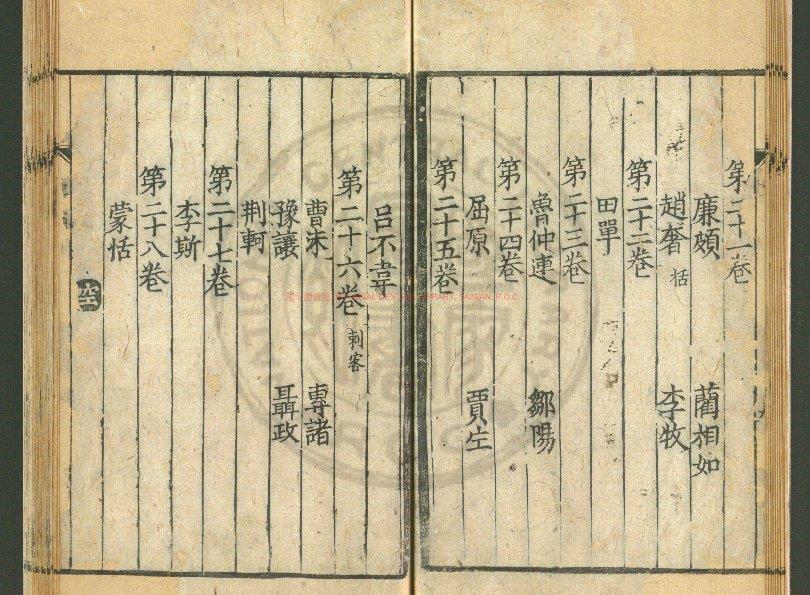 第二十一卷
廉頗 藺相如
趙奢 括 李牧
第二十二卷
田單
第二十三卷
魯仲連 鄒陽
第二十四卷
屈原 賈生
第二十五卷
呂不韋
第二十六卷 刺客
曹沬 專諸
豫讓 聶政
荆軻
第二十七卷
李斯
第二十八卷
蒙恬